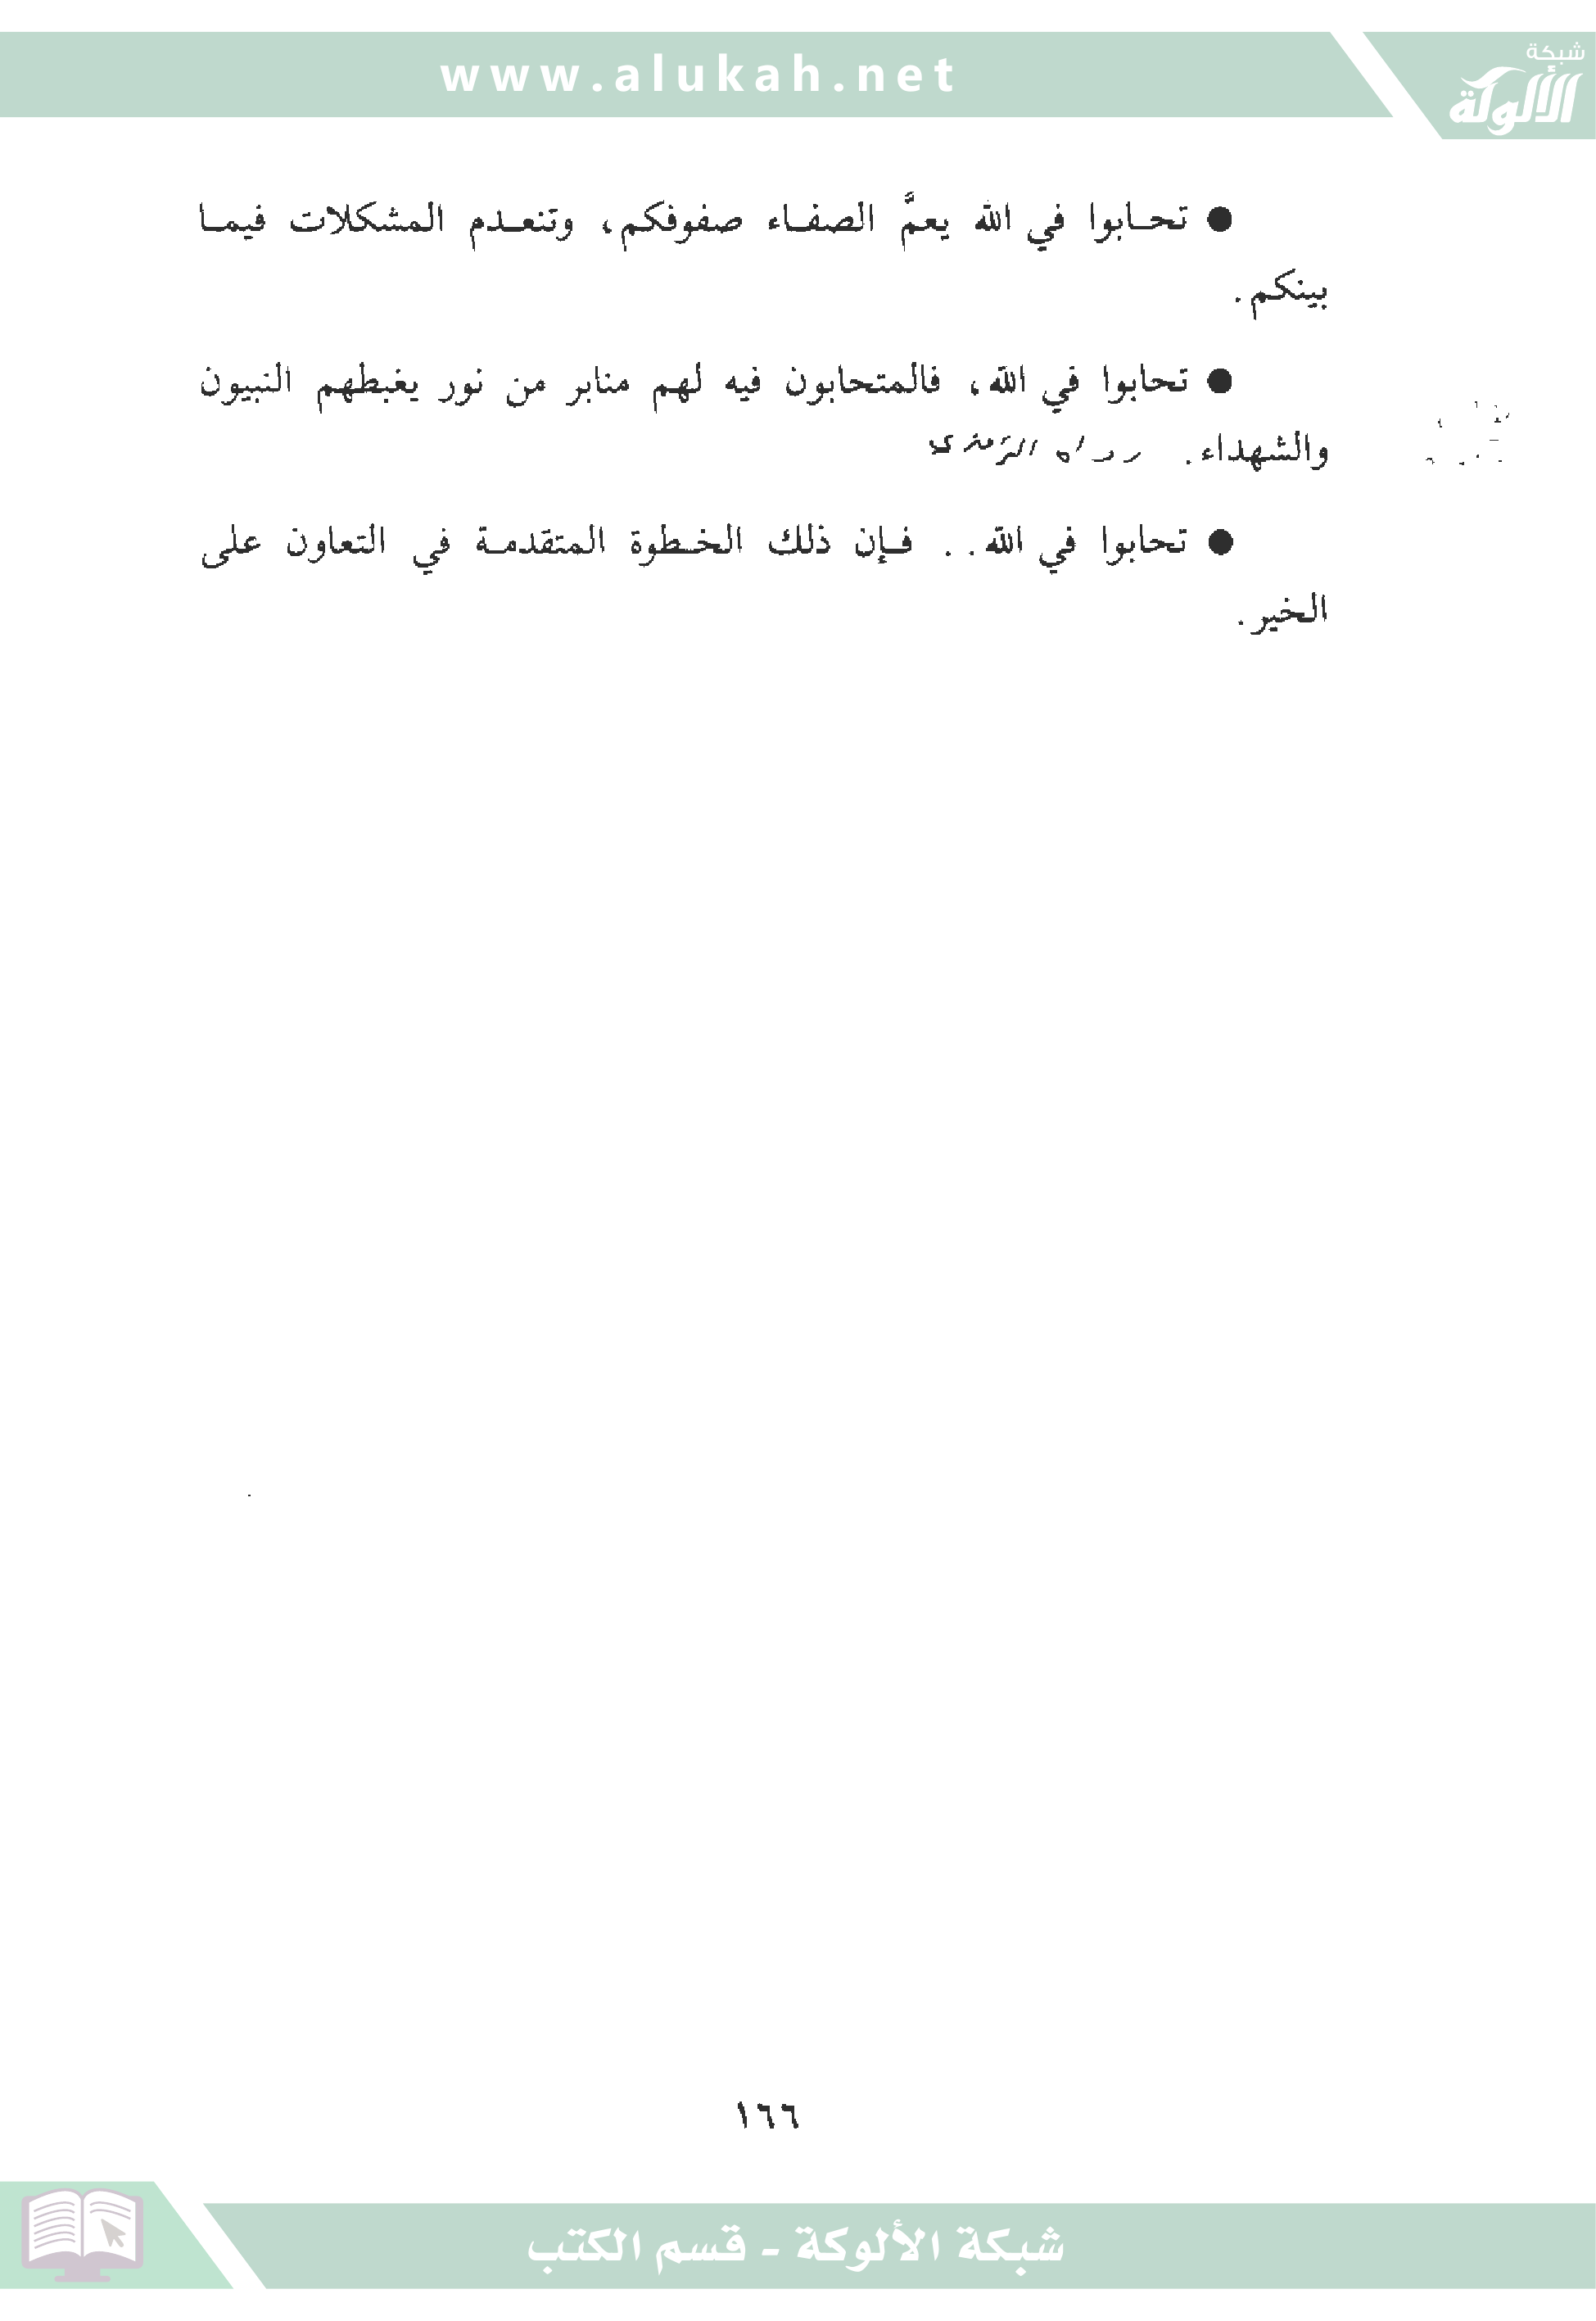 www.alukah.net
شبكة
الألوكة
● تحابوا في الله يعمَّ الصفاء صفوفكم، وتنعدم المشكلات فيما
بينكم.
● تحابوا في الله، فالمتحابون فيه لهم منابر من نور يغبطهم النبيون
والشهداء. رواه الترمذي
● تحابوا في الله.. فإن ذلك الخطوة المتقدمة في التعاون على
الخير.
١٦٦
شبكة الألوكة - قسم الكتب